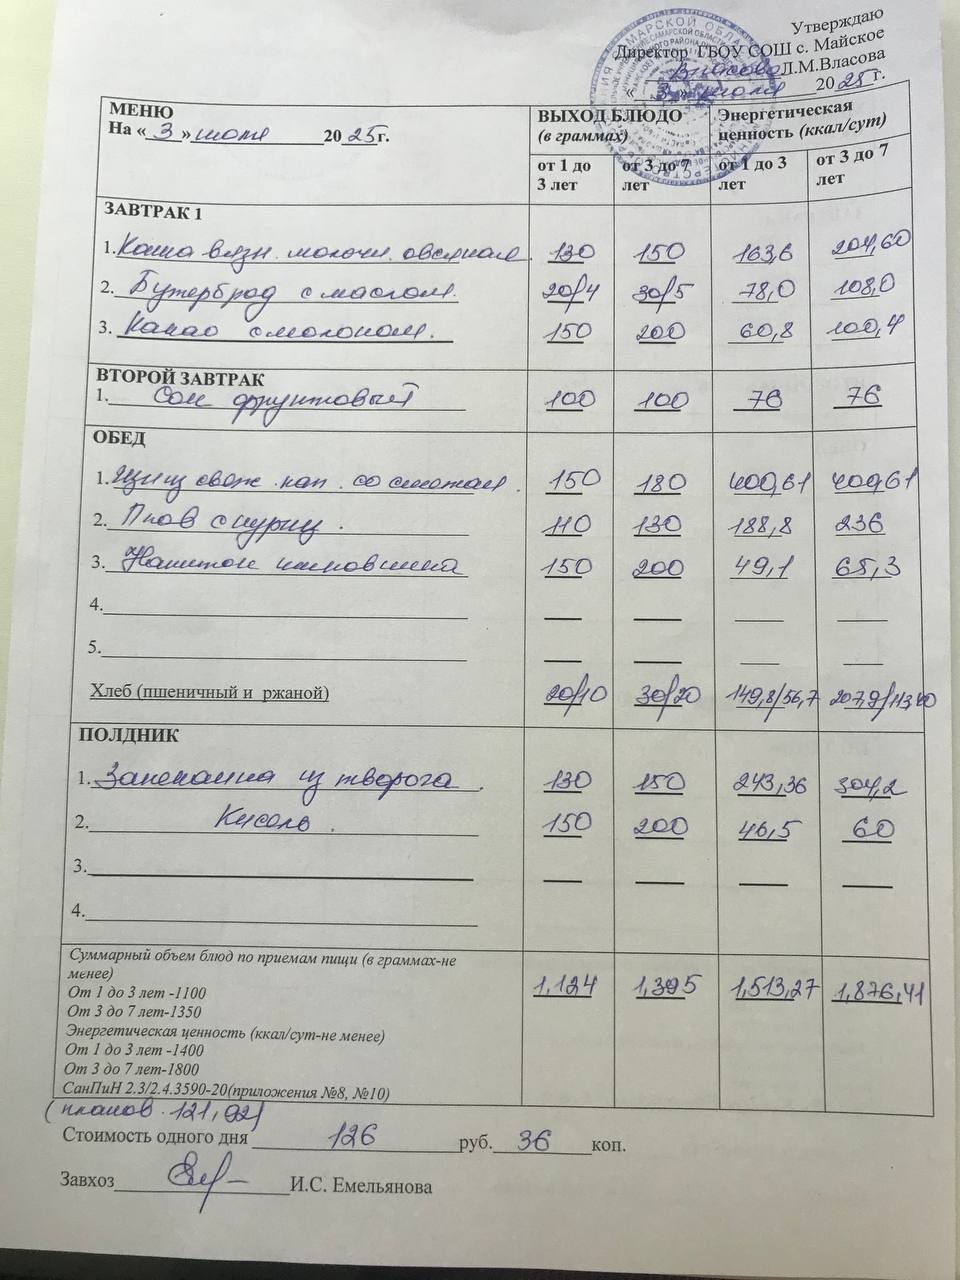 Утверждаю
Директор ГБОУ СОШ с. Майское
Власова Л.М.Власова
« 3 » июля 2025г.
МЕНЮ
На « 3 » июля 2025г.
ВЫХОД БЛЮДО
(в граммах)
Энергетическая
ценность (ккал/сут)
от 1 до 3 лет от 3 до 7 лет от 1 до 3 лет от 3 до 7 лет
ЗАВТРАК 1
1. Каша вязн. молочн. овсяная 130 150 163,6 204,60
2. Бутерброд с маслом. 20/4 30/5 78,0 108,0
3. Какао с молоком. 150 200 60,8 100,4
ВТОРОЙ ЗАВТРАК
1. Сок фруктовый 100 100 76 76
ОБЕД
1. Щи из свеж. кап. со сметан. 150 180 400,61 400,61
2. Плов с куриц. 110 130 188,8 236
3. Напиток из шиповника 150 200 49,1 65,3
4.
5.
Хлеб (пшеничный и ржаной) 20/10 30/20 149,8/56,7 207,9/113,40
ПОЛДНИК
1. Запеканка из творога 130 150 243,36 304,2
2. Кисель. 150 200 46,5 60
3.
4.
Суммарный объем блюд по приемам пищи (в граммах-не
менее) 1,124 1,395 1,513,27 1,876,41
От 1 до 3 лет -1100
От 3 до 7 лет-1350
Энергетическая ценность (ккал/сут-не менее)
От 1 до 3 лет -1400
От 3 до 7 лет-1800
СанПиН 2.3/2.4.3590-20(приложения №8, №10)
(планов. 121,92)
Стоимость одного дня 126 руб. 36 коп.
Завхоз И.С. Емельянова